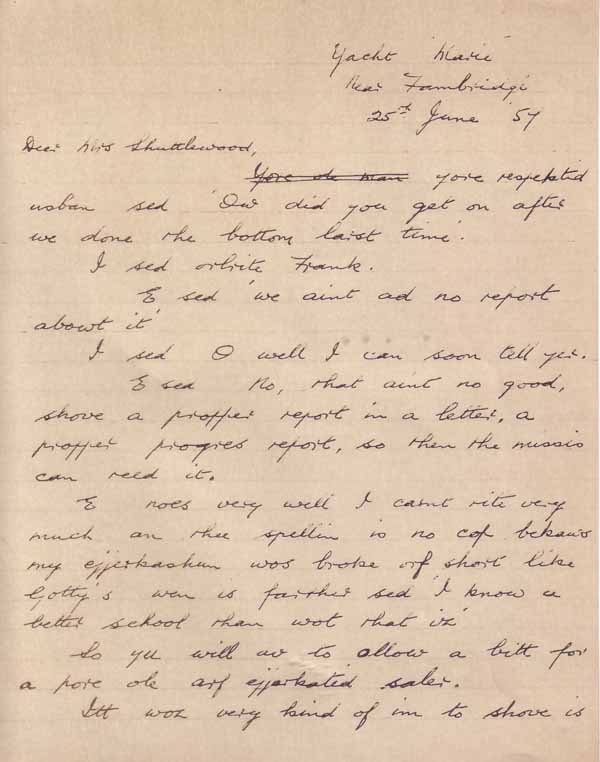 Yacht 'Marie'
Near Fambridge
25th June '57
Dear Mrs Shuttlewood,
Yore ole man yore respektid
usban sed 'Ow did you get on after
we done the bottom laist time'.
I sed orlrite Frank.
E sed 'we aint ad no report
abowt it'
I sed O well I can soon tell yer.
E sed No, that aint no good,
shove a propper report in a letter, a
propper progres report, so then the missis
can reed it.
E noes very well I carnt rite very
much an thee spellin is no cop bekaws
my ejjerkashun wos broke orf short like
Gotty's wen is fairther sed 'I know a
better school than wot that iz'
So yu will av to allow a bitt for
a pore ole arf ejjerkated saler.
Itt woz very kind of im to shove is